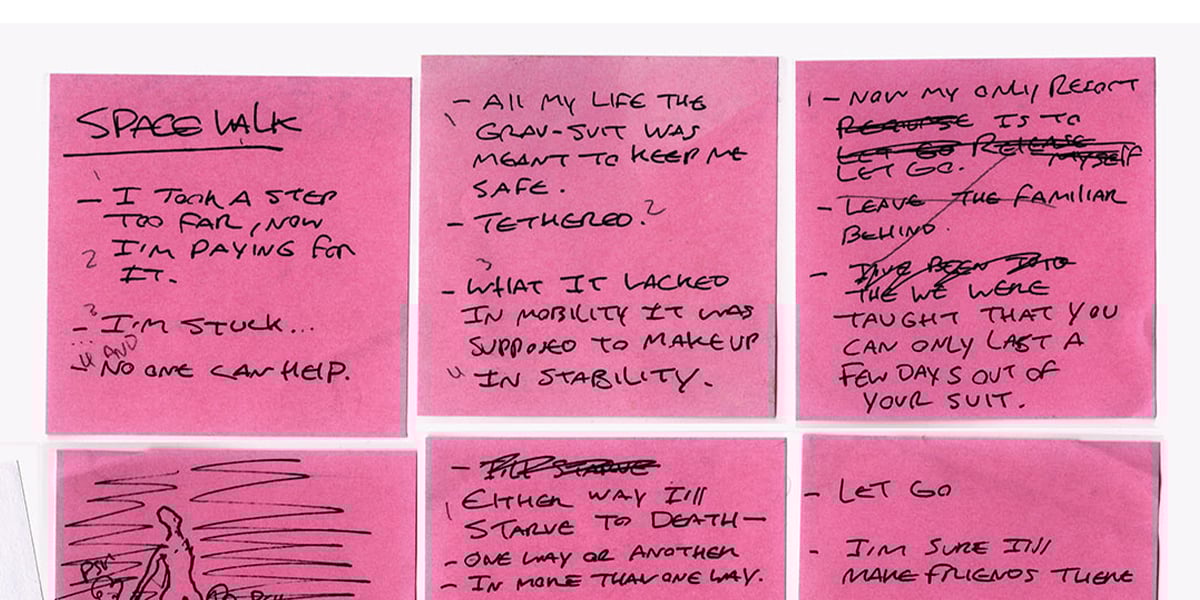 SPACE WALK
1
- I TOOK A STEP
TOO FAR, NOW
2 I'M PAYING FOR
IT.
3
- I'M STUCK...
4 AND
- NO ONE CAN HELP.
- All MY LIFE THE
1 GRAV-SUIT WAS
MEANT TO KEEP ME
SAFE.
- TETHERED. 2
3
- WHAT IT LACKED
IN MOBILITY IT WAS
SUPPOSED TO MAKE UP
4 IN STABILITY.
1 - NOW MY ONLY RESORT
IS TO
LET GO RELEASE
MYSELF
LET GO.
- LEAVE THE FAMILIAR
BEHIND.
- I'VE BEEN INTO
THE WE WERE
TAUGHT THAT YOU
CAN ONLY LAST A
FEW DAYS OUT OF
YOUR SUIT.
- I'LL STARVE
1 EITHER WAY I'll
STARVE TO DEATH—
- ONE WAY OR ANOTHER
- IN MORE THAN ONE WAY.
- LET GO
- I'M SURE I'll
MAKE FRIENDS THERE